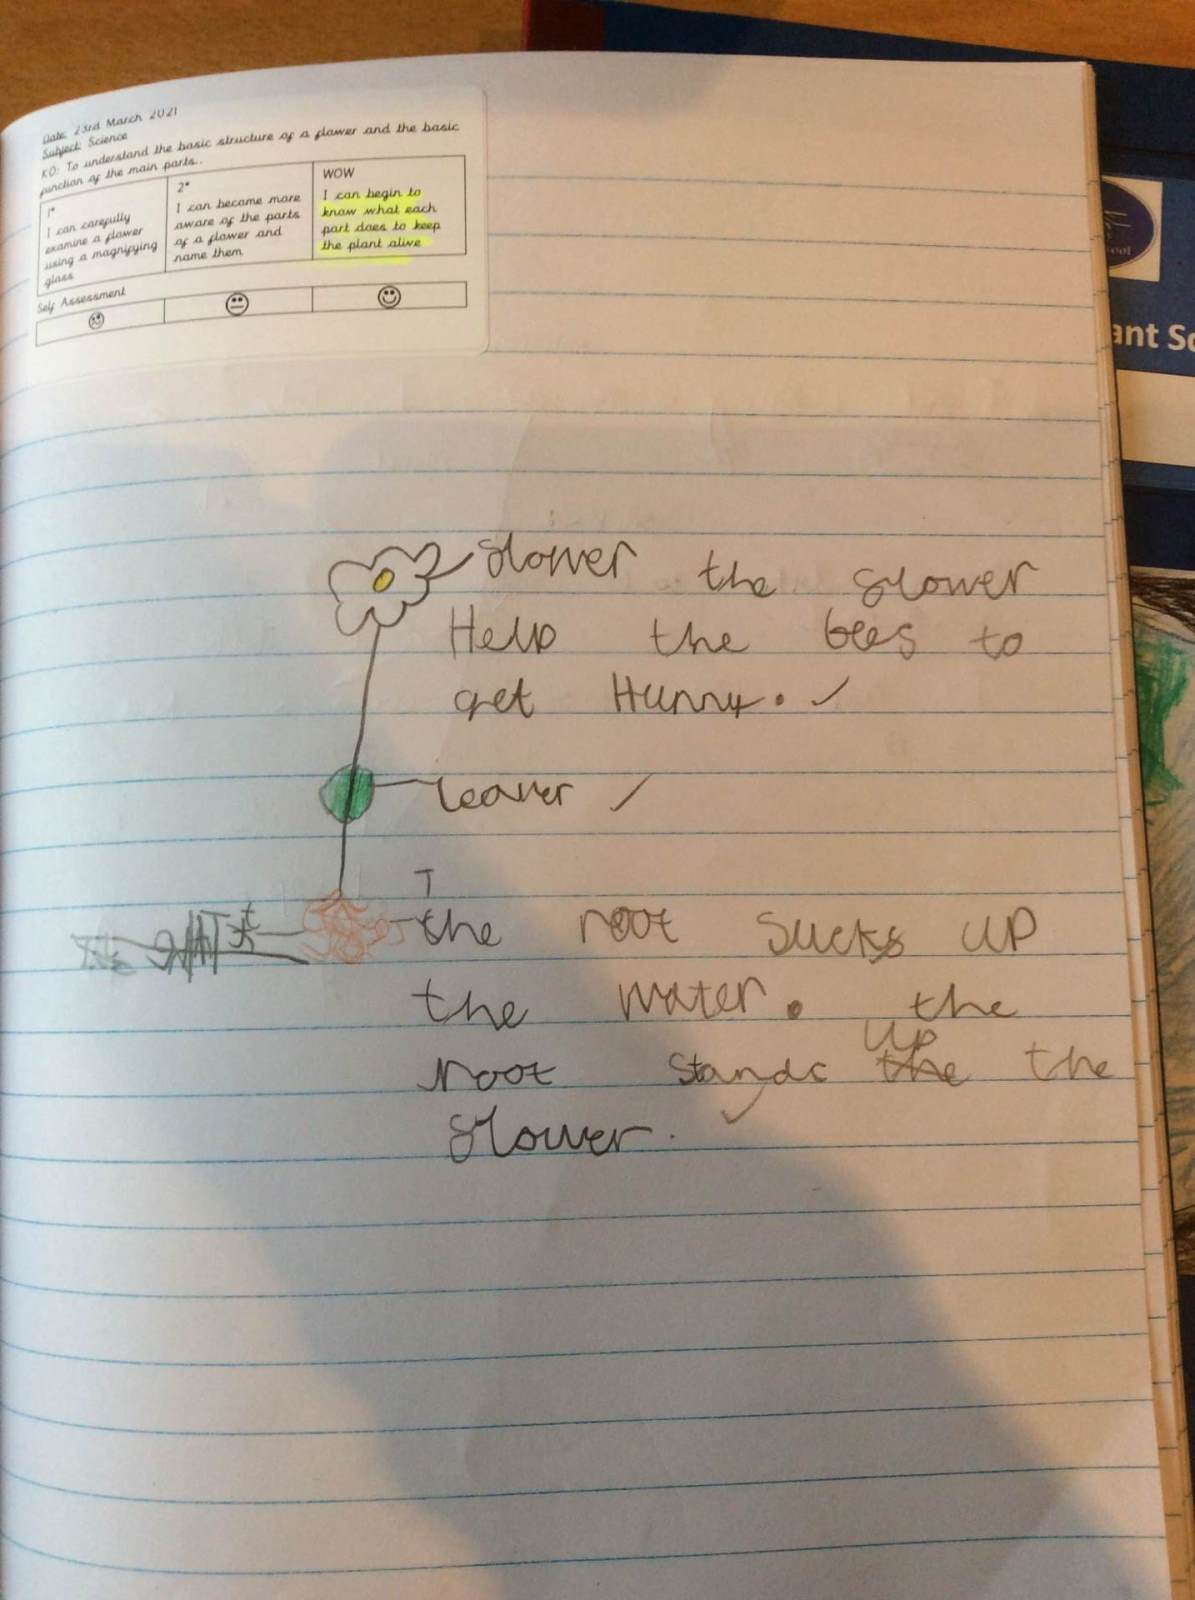 Date: 23rd March 2021
Subject: Science
KO: To understand the basic structure of a flower and the basic
function of the main parts..
1*
I can carefully
examine a flower
using a magnifying
glass
2*
I can become more
aware of the parts
of a flower and
name them
WOW
I can begin to
know what each
part does to keep
the plant alive
Self Assessment
ool
ant Sc
slower the slower
Help the bees to
get Hunny. ✓
leaver ✓
T
the root sucks up
the water. the
up
root stands the the
slower. ✓